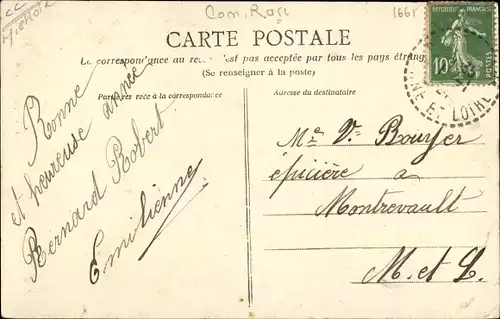 Com. Rou
1665
CARTE POSTALE
La correspondance au recto n'est pas acceptée par tous les pays étrang
(Se renseigner à la poste)
Partie réservée à la correspondance
Adresse du destinataire
REPUBLIQUE FRANÇAISE
10c
POSTES
ET LOIRE
Bonne
et heureuse année
Bernard Robert
Emilienne
Me Ve Bouyer
épicière a
Montrevault
M. et L.